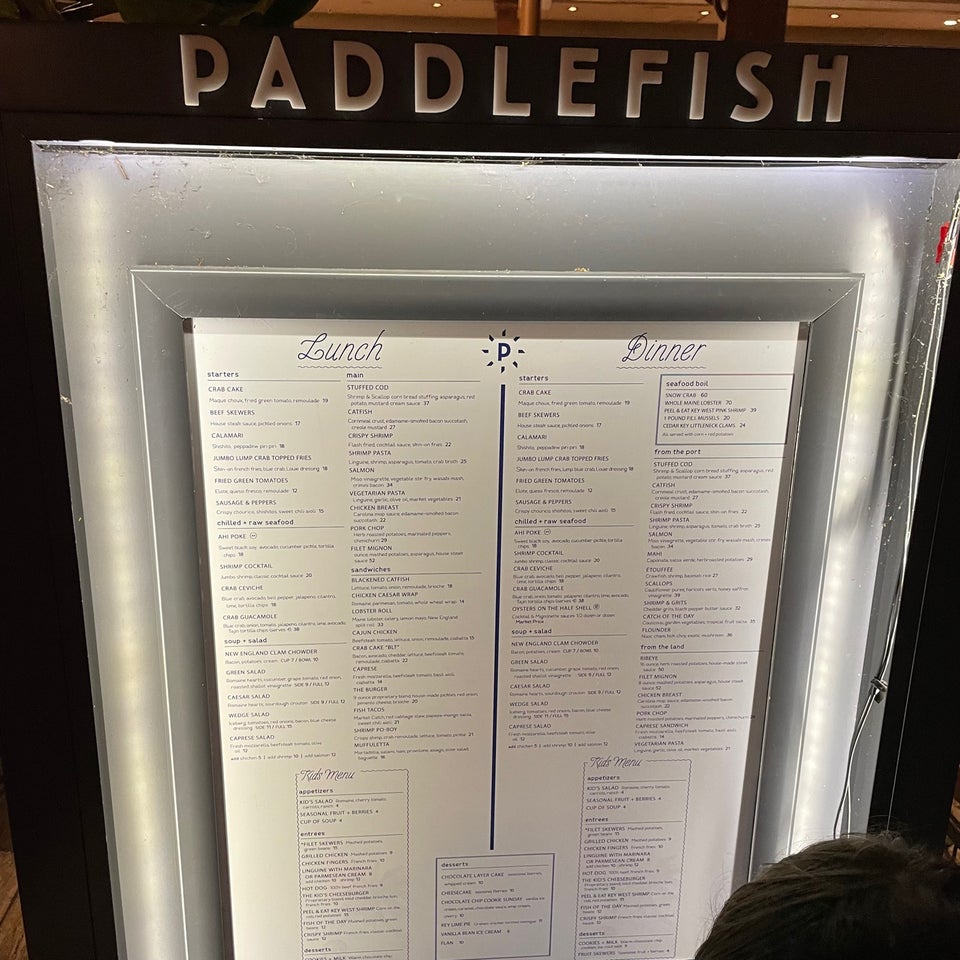 PADDLEFISH
Lunch
starters
CRAB CAKE
Maque choux, fried green tomato, remoulade 19
BEEF SKEWERS
House steak sauce, pickled onions 17
CALAMARI
Shishito, peppadew piri piri 18
JUMBO LUMP CRAB TOPPED FRIES
Skin-on french fries, blue crab, Louie dressing 18
FRIED GREEN TOMATOES
Elote, queso fresco, remoulade 12
SAUSAGE & PEPPERS
Crispy chourico, shishitos, sweet chili aioli 15
chilled + raw seafood
AHI POKE
Sweet black soy, avocado, cucumber pickle, tortilla
chips 18
SHRIMP COCKTAIL
Jumbo shrimp, classic cocktail sauce 20
CRAB CEVICHE
Blue crab, avocado, bell pepper, jalapeno, cilantro,
lime, tortilla chips 18
CRAB GUACAMOLE
Blue crab, onion, tomato, jalapeno, cilantro, lime, avocado,
Tajin tortilla chips (serves 4) 38
soup + salad
NEW ENGLAND CLAM CHOWDER
Bacon, potatoes, cream CUP 7 / BOWL 10
GREEN SALAD
Romaine hearts, cucumber, grape tomato, red onion,
roasted shallot vinaigrette SIDE 9 / FULL 12
CAESAR SALAD
Romaine hearts, sourdough crouton SIDE 9 / FULL 12
WEDGE SALAD
Iceberg, tomatoes, red onions, bacon, blue cheese
dressing SIDE 11 / FULL 15
CAPRESE SALAD
Fresh mozzarella, beefsteak tomato, olive
oil 12
add chicken 5 | add shrimp 10 | add salmon 12
main
STUFFED COD
Shrimp & Scallop corn bread stuffing, asparagus, red
potato, mustard cream sauce 37
CATFISH
Cornmeal crust, edamame-smoked bacon succotash,
creole mustard 27
CRISPY SHRIMP
Flash fried, cocktail sauce, skin-on fries 22
SHRIMP PASTA
Linguine, shrimp, asparagus, tomato, crab broth 25
SALMON
Miso vinaigrette, vegetable stir fry, wasabi mash,
crimini bacon 34
VEGETARIAN PASTA
Linguine, garlic, olive oil, market vegetables 21
CHICKEN BREAST
Carolina mop sauce, edamame-smoked bacon
succotash 22
PORK CHOP
Herb roasted potatoes, marinated peppers,
chimichurri 29
FILET MIGNON
ounce, mashed potatoes, asparagus, house steak
sauce 52
sandwiches
BLACKENED CATFISH
Lettuce, tomato, onion, remoulade, brioche 18
CHICKEN CAESAR WRAP
Romaine, parmesan, tomato, whole wheat wrap 14
LOBSTER ROLL
Maine lobster, celery, lemon mayo, New England
split roll 33
CAJUN CHICKEN
Beefsteak tomato, lettuce, onion, remoulade, ciabatta 15
CRAB CAKE "BLT"
Bacon, avocado, cheddar, lettuce, beefsteak tomato,
remoulade, ciabatta 22
CAPRESE
Fresh mozzarella, beefsteak tomato, basil aioli,
ciabatta 14
THE BURGER
9 ounce proprietary blend, house-made pickles, red onion,
pimento cheese, brioche 20
FISH TACOS
Market Catch, red cabbage slaw, papaya-mango salsa,
sweet chili aioli 21
SHRIMP PO-BOY
Crispy shrimp, crab remoulade, lettuce, tomato, pickle 21
MUFFULETTA
Mortadella, salami, ham, provolone, asiago, olive salad,
baguette 16
Kids Menu
appetizers
KID'S SALAD Romaine, cherry tomato,
carrots, ranch 4
SEASONAL FRUIT + BERRIES 4
CUP OF SOUP 4
entrees
*FILET SKEWERS Mashed potatoes,
green beans 15
GRILLED CHICKEN Mashed potatoes 9
CHICKEN FINGERS French fries 10
LINGUINE WITH MARINARA
OR PARMESEAN CREAM 8
add chicken 10 shrimp 12
HOT DOG 100% beef, french fries 9
THE KID'S CHEESEBURGER
Proprietary blend, mild cheddar, brioche bun,
french fries 10
PEEL & EAT KEY WEST SHRIMP Corn on the
cob, red potatoes 15
FISH OF THE DAY Mashed potatoes, green
beans 12
CRISPY SHRIMP French fries, classic cocktail
sauce 12
desserts
COOKIES + MILK Warm chocolate chip
P
desserts
CHOCOLATE LAYER CAKE seasonal berries,
whipped cream 10
CHEESECAKE seasonal berries 10
CHOCOLATE CHIP COOKIE SUNDAE vanilla ice
cream, caramel, chocolate sauce, whip cream,
cherry 10
KEY LIME PIE meringue 11
VANILLA BEAN ICE CREAM 8
FLAN 10
Dinner
starters
CRAB CAKE
Maque choux, fried green tomato, remoulade 19
BEEF SKEWERS
House steak sauce, pickled onions 17
CALAMARI
Shishito, peppadew piri piri 18
JUMBO LUMP CRAB TOPPED FRIES
Skin-on french fries, lump blue crab, Louie dressing 18
FRIED GREEN TOMATOES
Elote, queso fresco, remoulade 12
SAUSAGE & PEPPERS
Crispy chourico, shishitos, sweet chili aioli 15
chilled + raw seafood
AHI POKE
Sweet black soy, avocado, cucumber pickle, tortilla
chips 18
SHRIMP COCKTAIL
Jumbo shrimp, classic cocktail sauce 20
CRAB CEVICHE
Blue crab, avocado, bell pepper, jalapeno, cilantro,
lime, tortilla chips 18
CRAB GUACAMOLE
Blue crab, onion, tomato, jalapeno, cilantro, lime, avocado,
Tajin tortilla chips (serves 4) 38
OYSTERS ON THE HALF SHELL
Cocktail & Mignonette sauces 1/2 dozen or dozen
Market Price
soup + salad
NEW ENGLAND CLAM CHOWDER
Bacon, potatoes, cream CUP 7 / BOWL 10
GREEN SALAD
Romaine hearts, cucumber, grape tomato, red onion,
roasted shallot vinaigrette SIDE 9 / FULL 12
CAESAR SALAD
Romaine hearts, sourdough crouton SIDE 9 / FULL 12
WEDGE SALAD
Iceberg, tomatoes, red onions, bacon, blue cheese
dressing SIDE 11 / FULL 15
CAPRESE SALAD
Fresh mozzarella, beefsteak tomato, olive
oil 12
add chicken 5 | add shrimp 10 | add salmon 12
seafood boil
SNOW CRAB 60
WHOLE MAINE LOBSTER 70
PEEL & EAT KEY WEST PINK SHRIMP 39
1 POUND P.E.I. MUSSELS 20
CEDAR KEY LITTLENECK CLAMS 24
All served with corn + red potatoes
from the port
STUFFED COD
Shrimp & Scallop corn bread stuffing, asparagus, red
potato, mustard cream sauce 37
CATFISH
Cornmeal crust, edamame-smoked bacon succotash,
creole mustard 27
CRISPY SHRIMP
Flash fried, cocktail sauce, skin-on fries 22
SHRIMP PASTA
Linguine, shrimp, asparagus, tomato, crab broth 25
SALMON
Miso vinaigrette, vegetable stir fry, wasabi mash, crimini
bacon 34
MAHI
Caponata, salsa verde, herb roasted potatoes 29
ETOUFFEE
Crawfish, shrimp, basmati rice 27
SCALLOPS
Cauliflower puree, haricots verts, honey saffron
vinaigrette 39
SHRIMP & GRITS
Cheddar grits, black pepper butter sauce 32
CATCH OF THE DAY
Couscous, garden vegetables, tropical fruit salsa 35
FLOUNDER
Nuoc cham, bok choy, exotic mushroom 36
from the land
RIBEYE
16 ounce, herb roasted potatoes, house-made steak
sauce 50
FILET MIGNON
8 ounce, mashed potatoes, asparagus, house steak
sauce 52
CHICKEN BREAST
Carolina mop sauce, edamame-smoked bacon
succotash 22
PORK CHOP
Herb roasted potatoes, marinated peppers, chimichurri
CAPRESE SANDWICH
Fresh mozzarella, beefsteak tomato, basil aioli,
ciabatta 14
VEGETARIAN PASTA
Linguine, garlic, olive oil, market vegetables 21
Kids Menu
appetizers
KID'S SALAD Romaine, cherry tomato,
carrots, ranch 4
SEASONAL FRUIT + BERRIES 4
CUP OF SOUP 4
entrees
*FILET SKEWERS Mashed potatoes,
green beans 15
GRILLED CHICKEN Mashed potatoes 9
CHICKEN FINGERS French fries 10
LINGUINE WITH MARINARA
OR PARMESEAN CREAM 8
add chicken 10 shrimp 12
HOT DOG 100% beef, french fries 9
THE KID'S CHEESEBURGER
Proprietary blend, mild cheddar, brioche bun,
french fries 10
PEEL & EAT KEY WEST SHRIMP Corn on the
cob, red potatoes 15
FISH OF THE DAY Mashed potatoes, green
beans 12
CRISPY SHRIMP French fries, classic cocktail
sauce 12
desserts
COOKIES + MILK Warm chocolate chip
cookies, ice cold milk 9
FRUIT SKEWERS Seasonal fruit + berries 4